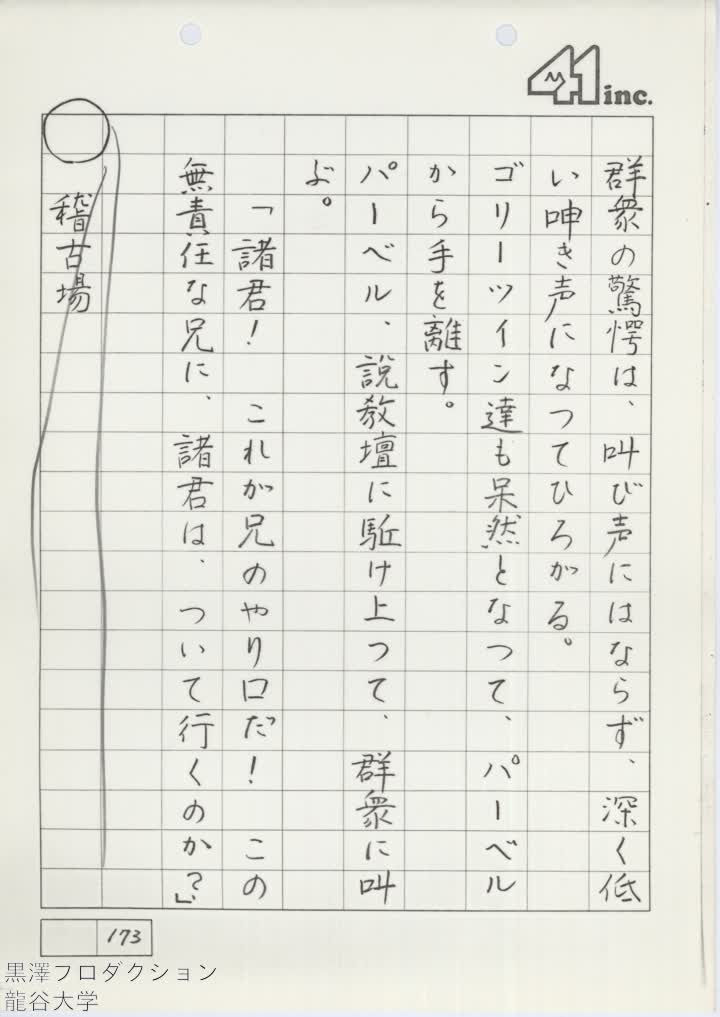 41 inc.
群衆の驚愕は、叫び声にはならず、深く低
い呻き声になつてひろがる。
ゴリーツイン達も呆然となつて、パーベル
から手を離す。
パーベル、説教壇に駈け上つて、群衆に叫
ぶ。
「諸君!これが兄のやり口だ!この
無責任な兄に、諸君は、ついて行くのか?」
稽古場
173
黒澤プロダクション
龍谷大学